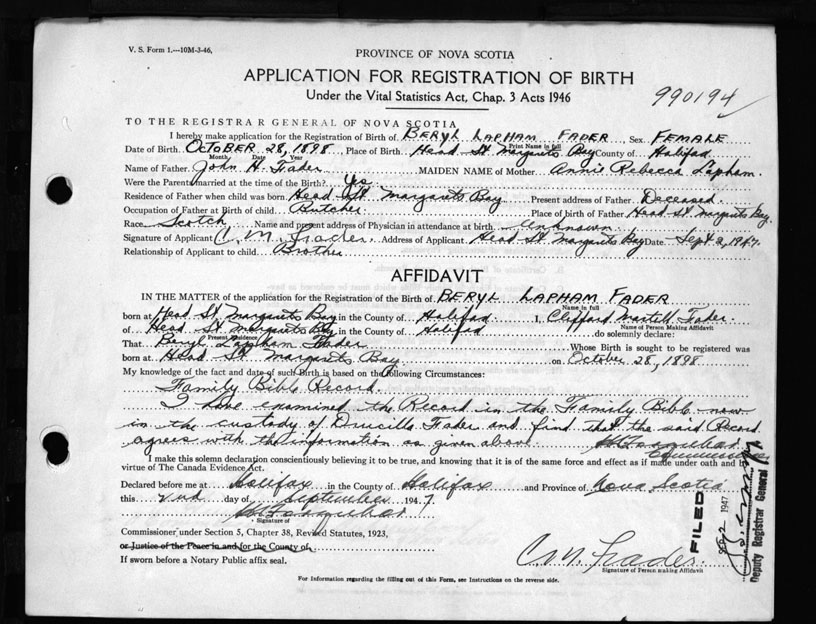 V. S. Form 1.—10M-3-46.
PROVINCE OF NOVA SCOTIA
APPLICATION FOR REGISTRATION OF BIRTH
Under the Vital Statistics Act, Chap. 3 Acts 1946
990194
TO THE REGISTRAR GENERAL OF NOVA SCOTIA
I hereby make application for the Registration of Birth of BERYL LAPHAM FADER, Sex FEMALE
Print Name in full
Date of Birth OCTOBER 28, 1898, Place of Birth Head St Margarets Bay County of Halifax
Month Date Year
Name of Father John H. Fader MAIDEN NAME of Mother Annie Rebecca Lapham.
Were the Parents married at the time of the Birth? Yes
Residence of Father when child was born Head St Margarets Bay Present address of Father Deceased.
Occupation of Father at Birth of child Butcher Place of birth of Father Head St Margarets Bay.
Race Scotch Name and present address of Physician in attendance at birth Unknown.
Signature of Applicant C. M. Fader. Address of Applicant Head St Margarets Bay Date Sept 2, 1947.
Relationship of Applicant to child Brother
AFFIDAVIT
IN THE MATTER of the application for the Registration of the Birth of BERYL LAPHAM FADER
Name in full
born at Head St. Margarets Bay in the County of Halifax. I, Clifford Martell Fader.
Name of Person Making Affidavit
of Head St Margarets Bay in the County of Halifax do solemnly declare:
Present Residence
That Beryl Lapham Fader Whose Birth is sought to be registered was
born at Head St. Margarets Bay. on October 28, 1898
My knowledge of the fact and date of such Birth is based on the following Circumstances:
Family Bible Record.
I have examined the Record in the Family Bible now
in the custody of Druscilla Fader and find that the said Record
agrees with the information as given above.
Commissioner
I make this solemn declaration conscientiously believing it to be true, and knowing that it is of the same force and effect as if made under oath and by
virtue of The Canada Evidence Act.
Declared before me at Halifax in the County of Halifax and Province of Nova Scotia
this 2nd day of September 1947.
Signature of
Commissioner under Section 5, Chapter 38, Revised Statutes, 1923,
or Justice of the Peace in and for the County of
If sworn before a Notary Public affix seal.
C. M. Fader
Signature of Person making Affidavit
For Information regarding the filling out of this Form, see Instructions on the reverse side.
FILED
SEP 2 1947
Deputy Registrar General